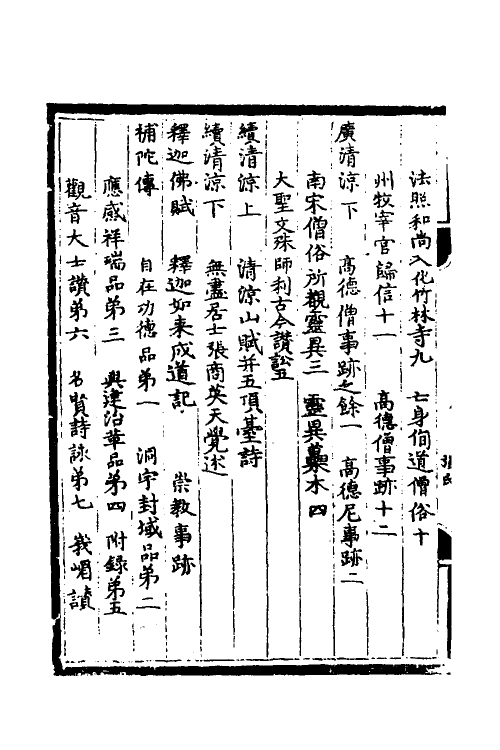 法照和尚入化竹林寺九　七身佪道僧俗十
州牧宰官歸信十一　高德僧事跡十二
廣清涼下　高德僧事跡之餘一　高德尼事跡二
南宋僧俗所觀靈異三　靈異木四
大聖文殊師利古今讚五
續清涼上　清涼山賦并五頂臺詩
續清涼下　無盡居士張商英天覺述
釋迦佛賦　釋迦如来成道記　崇教事跡
補陀傳　自在功德品第一　洞宇封域品第二
應感祥瑞品第三　興建沿革品第四　附録第五
觀音大士讚第六　名賢詩詠第七　峩嵋讃